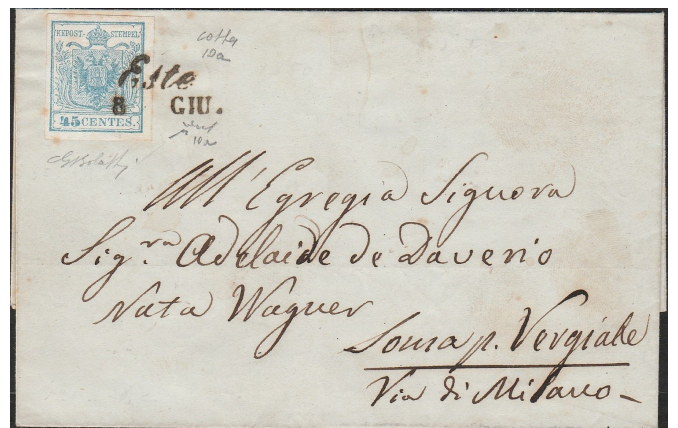 KKPOST-STEMPEL
cotta
10a
Este
8 GIU.
45 CENTES.
10a
All' Egregia Signora
Sig.ra Adelaide de Daverio
Nata Wagner
Soma p. Vergiate
Via di Milano